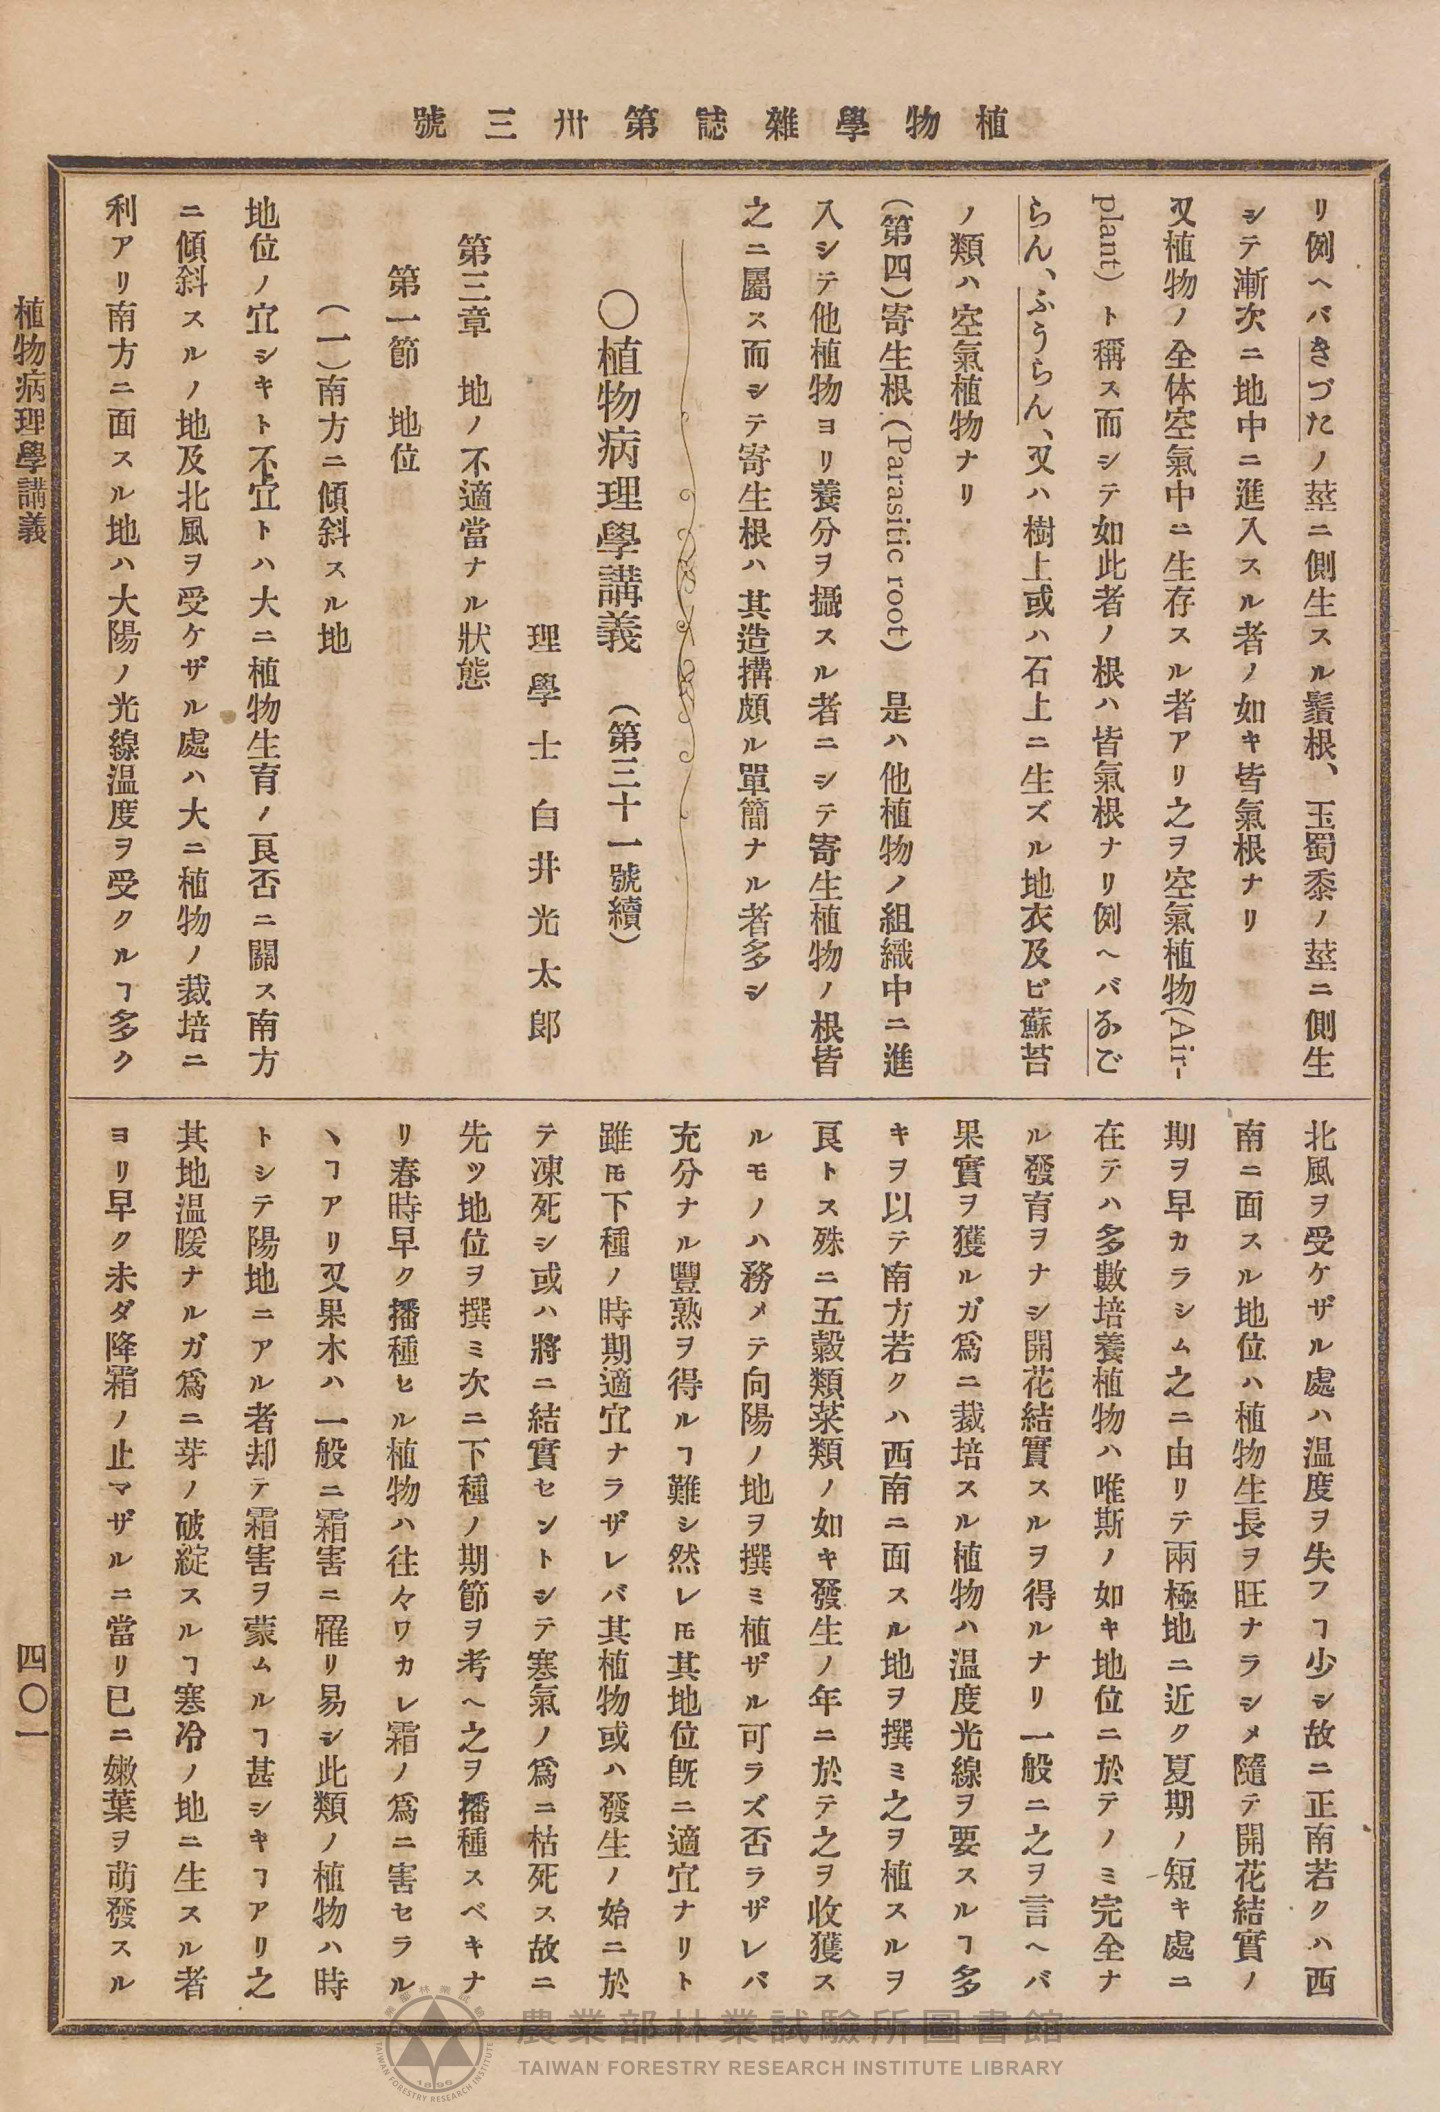 植物學雜誌第卅三號
リ例ヘバきづたノ莖ニ側生スル鬚根、玉蜀黍ノ莖ニ側生
シテ漸次ニ地中ニ進入スル者ノ如キ皆氣根ナリ
又植物ノ全体空氣中ニ生存スル者アリ之ヲ空氣植物(Air-
plant)ト稱ス而シテ如此者ノ根ハ皆氣根ナリ例ヘバなご
らん、ふうらん、又ハ樹上或ハ石上ニ生ズル地衣及ビ蘇苔
ノ類ハ空氣植物ナリ
(第四)寄生根(Parasitic root) 是ハ他植物ノ組織中ニ進
入シテ他植物ヨリ養分ヲ攝スル者ニシテ寄生植物ノ根皆
之ニ屬ス而シテ寄生根ハ其造搆頗ル單簡ナル者多シ
〇植物病理學講義 (第三十一號續)
理學士 白井光太郎
第三章 地ノ不適當ナル狀態
第一節 地位
(一)南方ニ傾斜スル地
地位ノ宜シキト不宜トハ大ニ植物生育ノ良否ニ關ス南方
ニ傾斜スルノ地及北風ヲ受ケザル處ハ大ニ植物ノ栽培ニ
利アリ南方ニ面スル地ハ大陽ノ光線温度ヲ受クルヿ多ク
北風ヲ受ケザル處ハ温度ヲ失フヿ少シ故ニ正南若クハ西
南ニ面スル地位ハ植物生長ヲ旺ナラシメ隨テ開花結實ノ
期ヲ早カラシム之ニ由リテ兩極地ニ近ク夏期ノ短キ處ニ
在テハ多數培養植物ハ唯斯ノ如キ地位ニ於テノミ完全ナ
ル發育ヲナシ開花結實スルヲ得ルナリ一般ニ之ヲ言ヘバ
果實ヲ獲ルガ爲ニ栽培スル植物ハ温度光線ヲ要スルヿ多
キヲ以テ南方若クハ西南ニ面スル地ヲ撰ミ之ヲ植スルヲ
良トス殊ニ五穀類菜類ノ如キ發生ノ年ニ於テ之ヲ收獲ス
ルモノハ務メテ向陽ノ地ヲ撰ミ植ザル可ラズ否ラザレバ
充分ナル豐熟ヲ得ルヿ難シ然レ𪜈其地位旣ニ適宜ナリト
雖𪜈下種ノ時期適宜ナラザレバ其植物或ハ發生ノ始ニ於
テ凍死シ或ハ將ニ結實セントシテ寒氣ノ爲ニ枯死ス故ニ
先ツ地位ヲ撰ミ次ニ下種ノ期節ヲ考ヘ之ヲ播種スベキナ
リ春時早ク播種セル植物ハ往々ワカレ霜ノ爲ニ害セラル
ヽヿアリ又果木ハ一般ニ霜害ニ罹リ易シ此類ノ植物ハ時
トシテ陽地ニアル者却テ霜害ヲ蒙ムルヿ甚シキヿアリ之
其地温暖ナルガ爲ニ芽ノ破綻スルヿ寒冷ノ地ニ生スル者
ヨリ早ク未ダ降霜ノ止マザルニ當リ已ニ嫩葉ヲ萌發スル
植物病理學講義
四〇一
農業部林業試驗所圖書館
TAIWAN FORESTRY RESEARCH INSTITUTE LIBRARY
農業部林業試驗所
TAIWAN FORESTRY RESEARCH INSTITUTE
1896